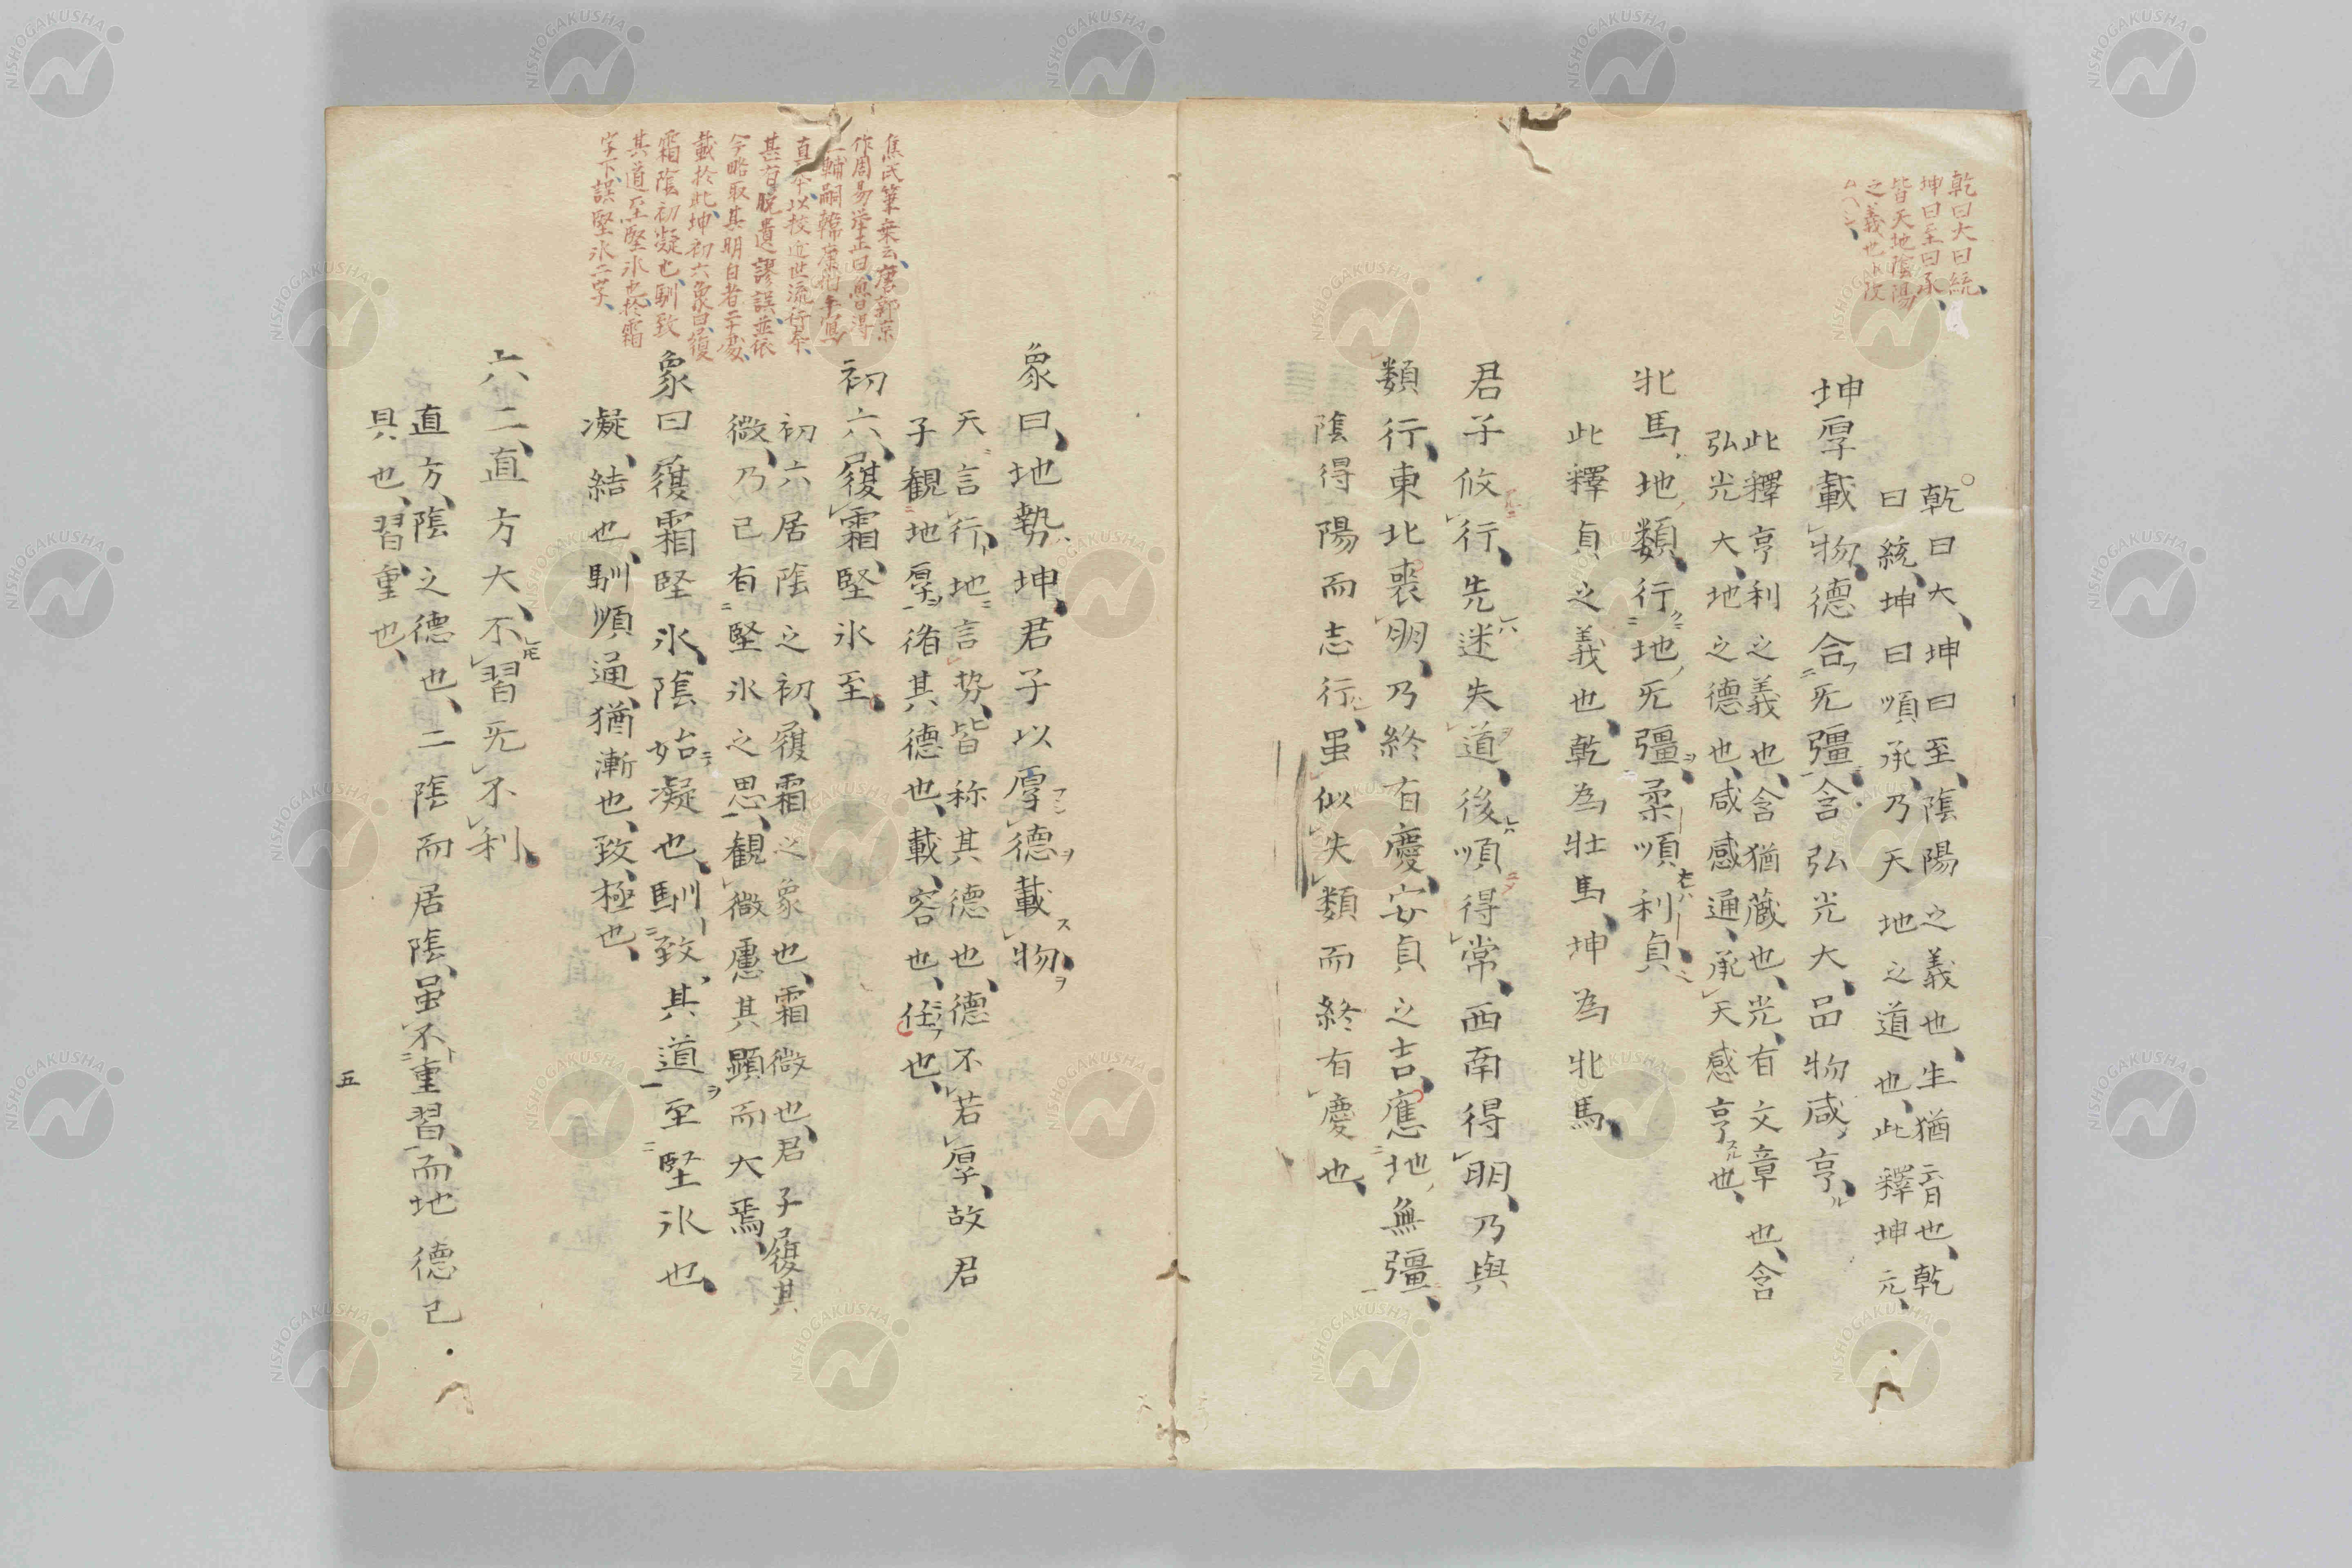 乾曰大曰統、
坤曰至曰承、
皆天地陰陽
之義也、下攷
乾曰大、坤曰至、陰陽之義也、生猶育也、乾
曰統、坤曰順承、乃天地之道也、此釋坤元、
坤厚載物、德合无彊、含弘光大、品物咸亨、
此釋亨利之義也、含猶蔵也、光、有文章也、含
弘光大、地之德也、咸感通、承天感亨也、
牝馬地類、行地无彊、柔順利貞、
此釋貞之義也、乾為壮馬、坤為牝馬、
君子攸行、先迷失道、後順得常、西南得朋、乃與
類行、東北喪朋、乃終有慶、安貞之吉、應地無彊、
陰得陽而志行、虽似失類而終有慶也、
焦氏筆乗云、唐郭京
作周易挙正曰、曽得
輔嗣韓康伯手寫
真本、以校近世流行本、
甚有脱遺謬誤、並依
今略取其明白者二十處、
載於此、坤初六象曰、履
霜陰初凝也、馴致
其道至堅氷也、於霜
字下、誤堅氷二字、
象曰、地勢坤、君子以厚德載物、
天言行、地言势、皆称其德也、德不若厚、故君
子観地厚、脩其德也、載、容也、任也、
初六、履霜、堅氷至、
初六居陰之初、履霜之象也、霜微也、君子履其
微、乃已有堅氷之思、観微慮其顕而大焉、
象曰、履霜堅氷、陰始凝也、馴致其道、至堅氷也、
凝、結也、馴順通、猶漸也、致、極也、
六二、直方大、不習无不利、
直方、陰之德也、二陰而居陰、虽不重習、而地德已
具也、習、重也、
五
NISHOGAKUSHA